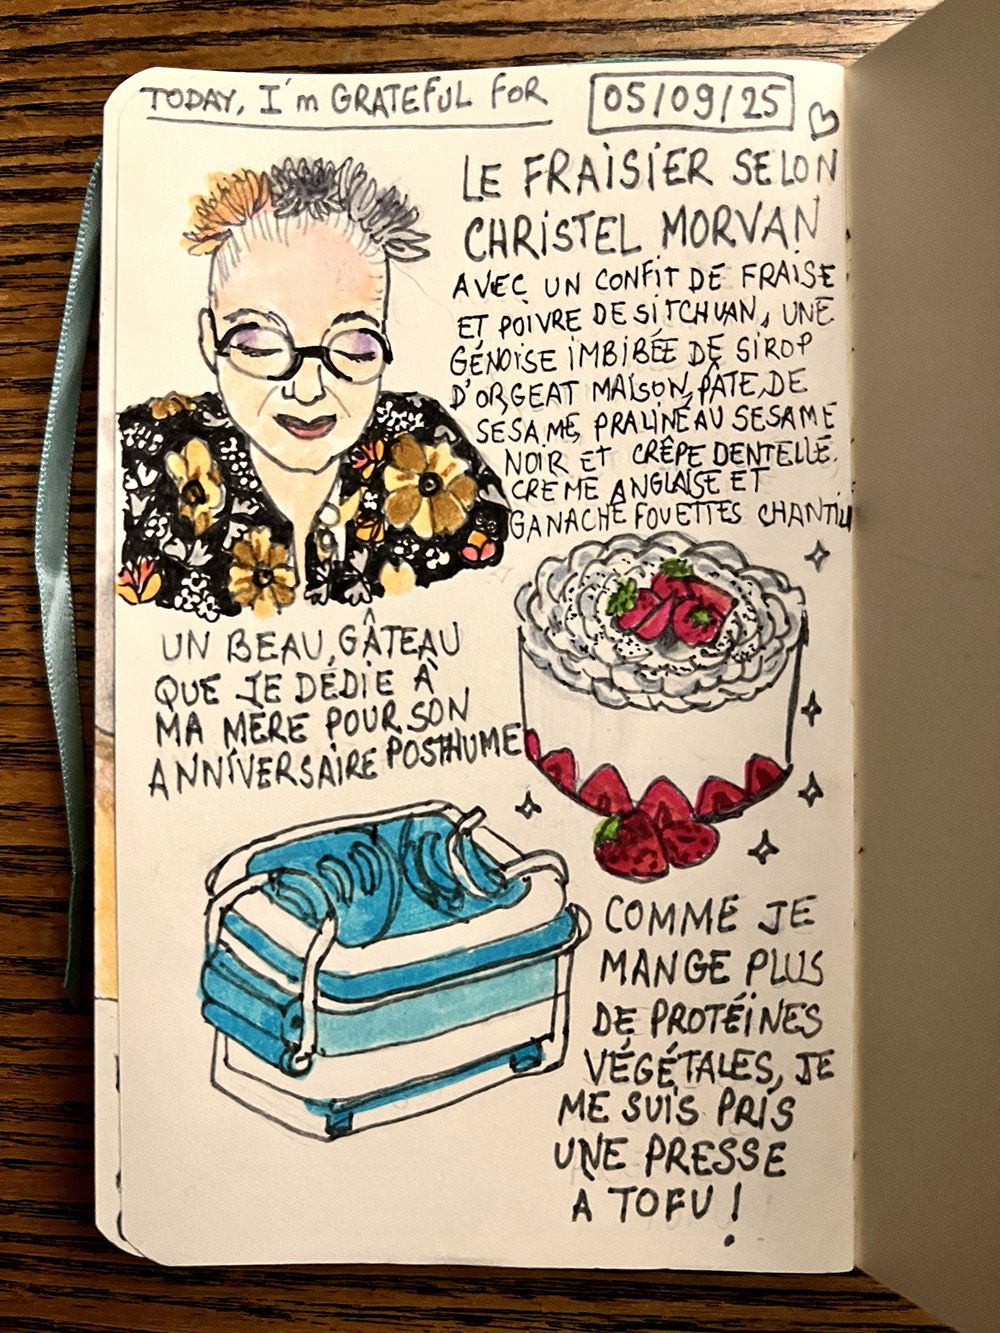 TODAY, I'm GRATEFUL FOR
05/09/25
LE FRAISIER SELON
CHRISTEL MORVAN
AVEC UN CONFIT DE FRAISE
ET POIVRE DE SITCHUAN, UNE
GÉNOISE IMBIBÉE DE SIROP
D'ORGEAT MAISON, PÂTE DE
SESAME, PRALINÉ AU SESAME
NOIR ET CRÊPE DENTELLE.
CREME ANGLAISE ET
GANACHE FOUETTÉS CHANTILLI
UN BEAU GÂTEAU
QUE JE DÉDIE À
MA MÈRE POUR SON
ANNIVERSAIRE POSTHUME
COMME JE
MANGE PLUS
DE PROTÉINES
VÉGÉTALES, JE
ME SUIS PRIS
UNE PRESSE
A TOFU !